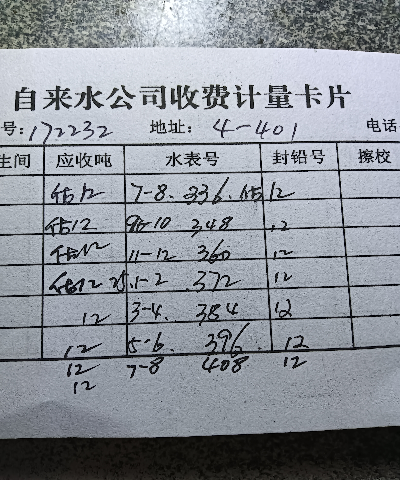 自来水公司收费计量卡片
号: 172232 地址: 4-401 电话
生间 应收吨 水表号 封铅号 擦校
估12 7-8. 336. 估12
估12 9-10 348 12
估12 11-12 360 12
估12 1-2 372 12
12 3-4. 384 12
12 5-6. 396. 12
12 7-8 408 12
12